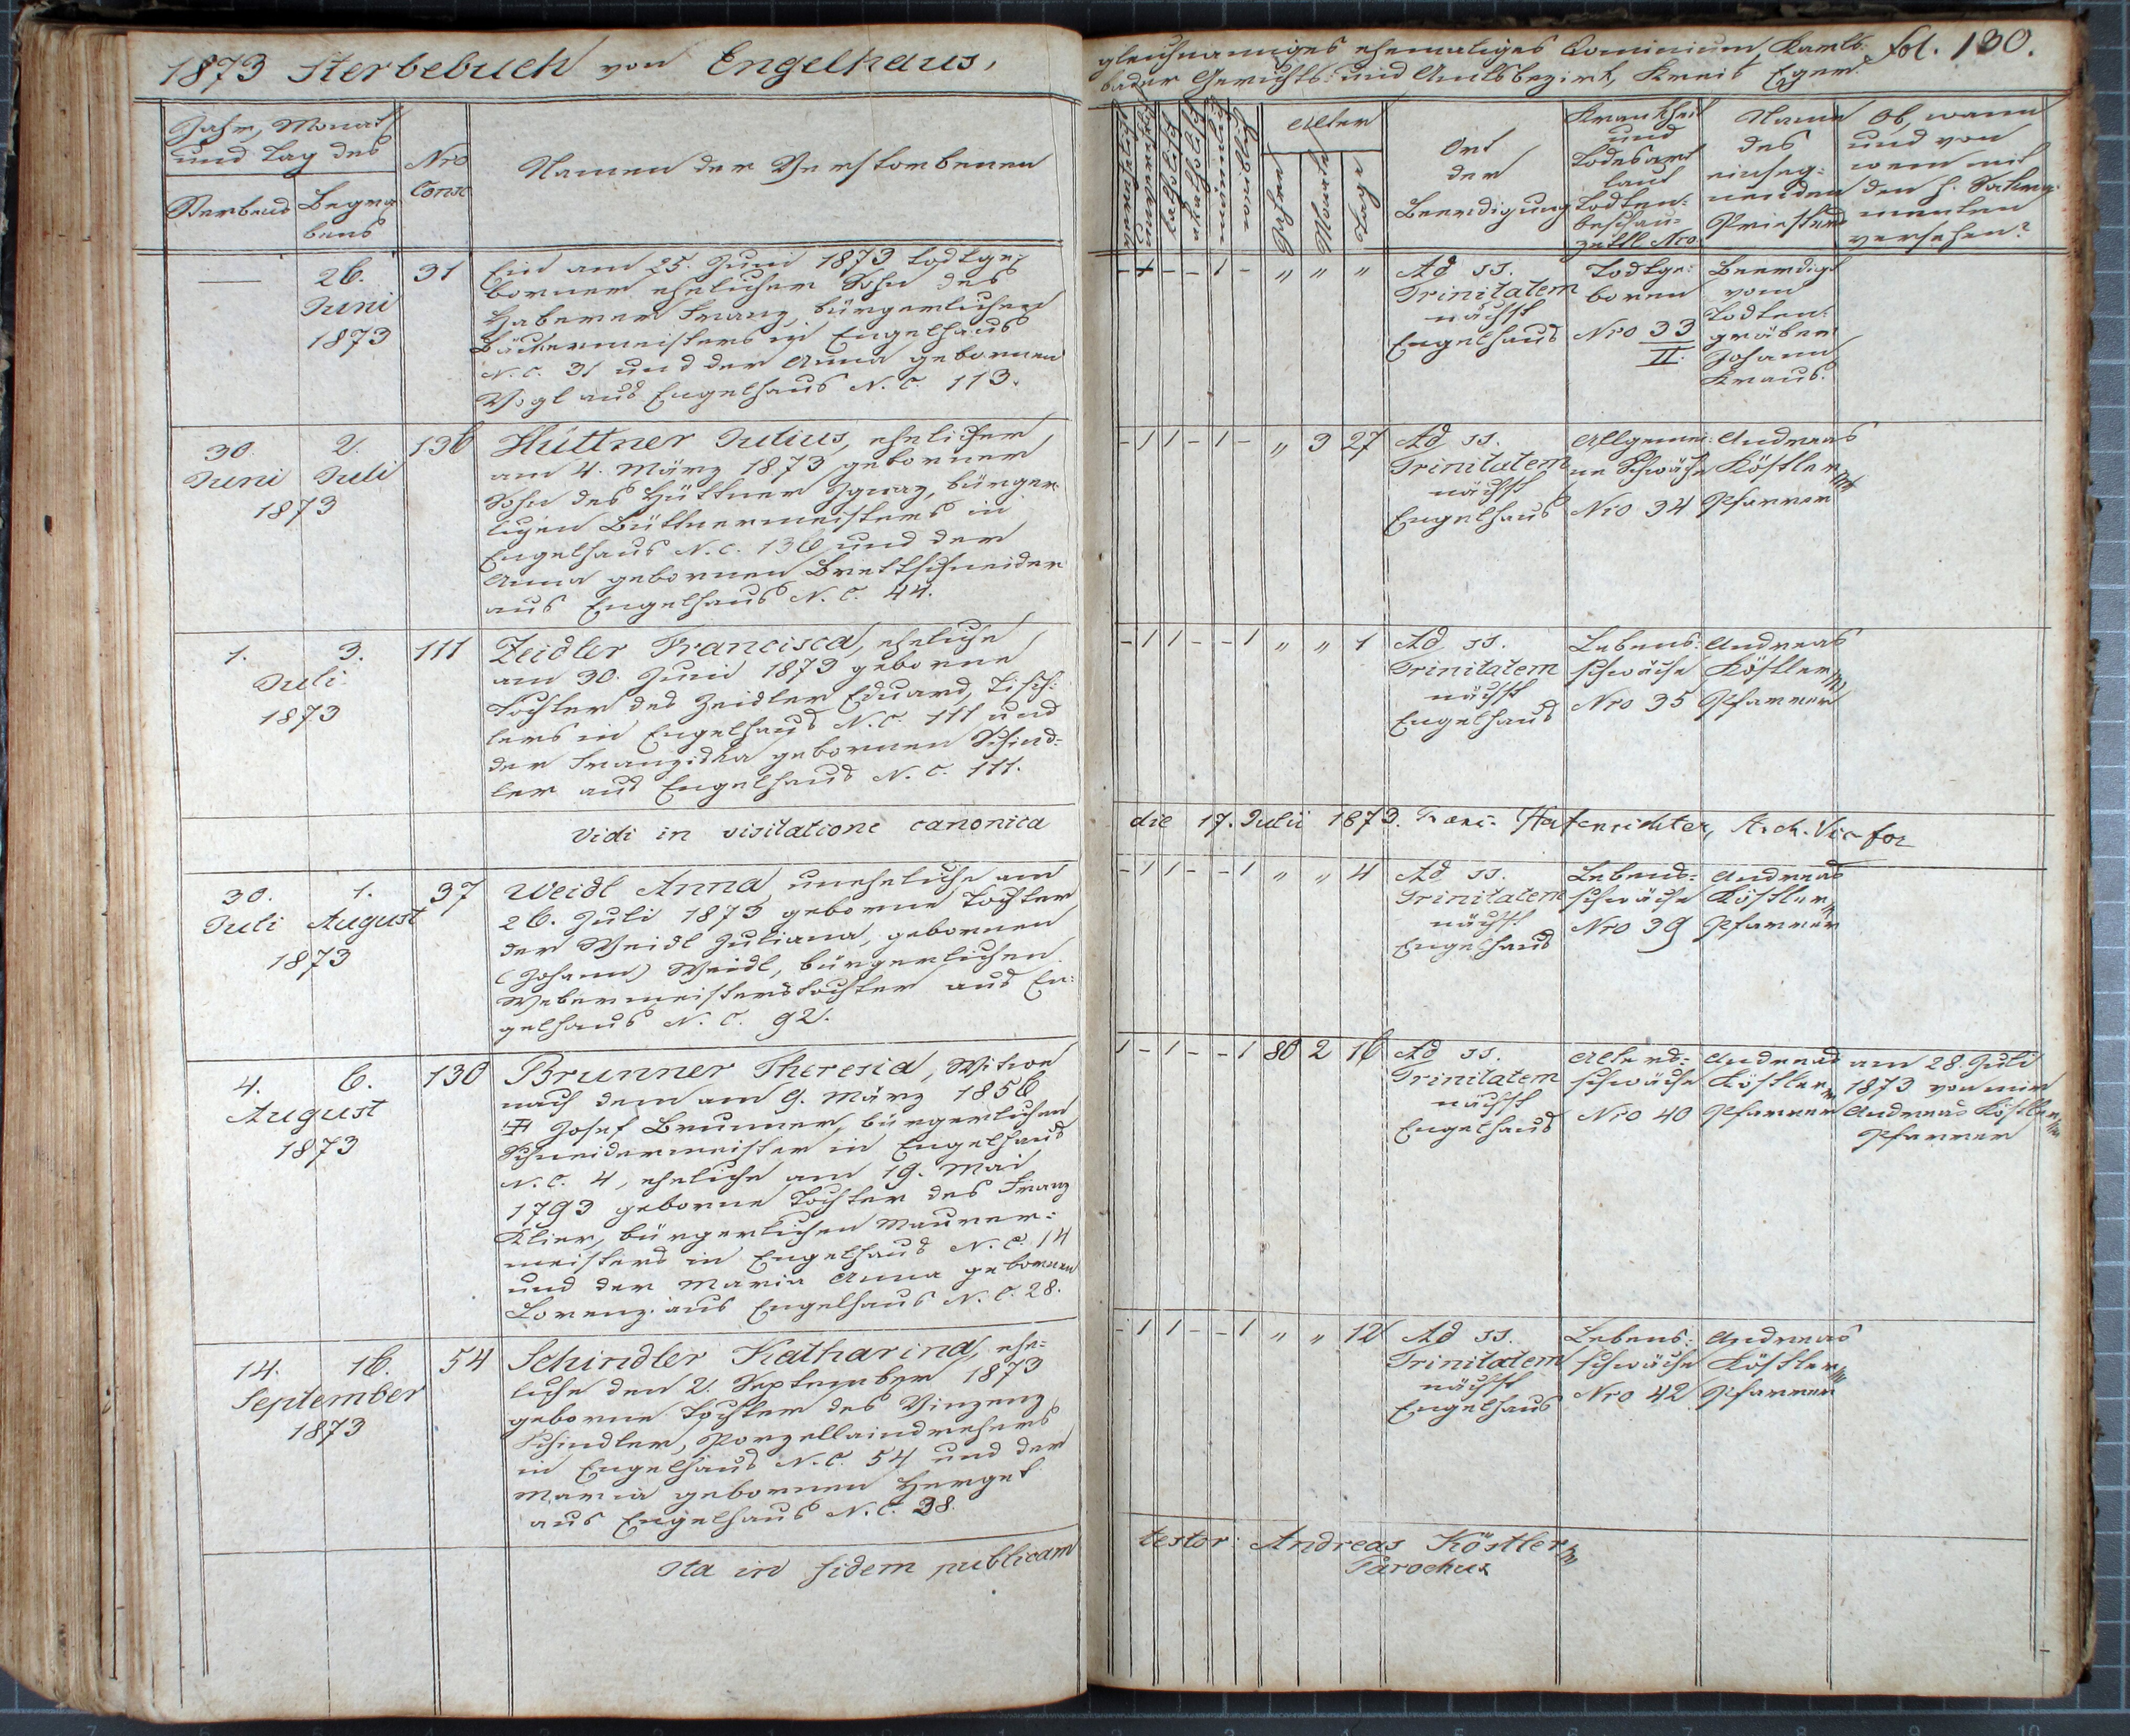 1873 Sterbebuch von Engelhaus,
Jahr, Monat
und Tag des
Sterbens
Begra-
bens
Nro
Consc
Namen der Verstorbenen
26.
Juni
1873
31
Ein am 25. Juni 1873 todtge-
borner ehelicher Sohn des
Haberer Franz, bürgerlichen
Bäckermeisters in Engelhaus
N. C. 31 und der Anna gebornen
Vogl aus Engelhaus N. C. 113.
30. 2.
Juni Juli
1873
136
Hüttner Julius, ehelicher
am 4. März 1873 geborner
Sohn des Hüttner Ignaz, bürger-
lichen Büttnermeisters in
Engelhaus N. C. 136 und der
Anna gebornen Brettschneider
aus Engelhaus N. C. 44.
1. 3.
Juli
1873
111
Zeidler Francisca, eheliche
am 30. Juni 1873 geborne
Tochter des Zeidler Eduard, Tisch-
lers in Engelhaus N. C. 111 und
der Franziska gebornen Schind-
ler aus Engelhaus N. C. 111.
Vidi in visitatione canonica
30. 1.
Juli August
1873
37
Weidl Anna, uneheliche am
26. Juli 1873 geborne Tochter
der Weidl Juliana, gebornen
(Johann) Weidl, bürgerlichen
Webermeisterstochter aus En-
gelhaus N. C. 92.
4. 6.
August
1873
130
Brunner Theresia, Witwe
nach dem am 9. März 1856
Josef Brunner, bürgerlichen
Schneidermeister in Engelhaus
N. C. 4, eheliche am 19. Mai
1793 geborne Tochter des Franz
Klier, bürgerlichen Maurer-
meisters in Engelhaus N. C. 14
und der Maria Anna gebornen
Lorenz aus Engelhaus N. C. 28.
14. 16.
September
1873
54
Schindler Katharina, ehe-
liche den 2. September 1873
geborne Tochter des Vinzenz
Schindler, Porzellaindrehers
in Engelhaus N. C. 54 und der
Maria gebornen Herget
aus Engelhaus N. C. 38.
Ita in fidem publicam
gleichnamiges ehemaliges Dominium, Karls-
bader Gerichts- und Amtsbezirk, Kreis Eger.
fol. 130.
katholisch
akatholisch
männlich
weiblich
Alter
Jahre
Monate
Tage
Ort
der
Beerdigung
Krankheit
und
Todesart
laut
Todten-
beschau-
zettl Nro
Name
des
einseg-
nenden
Priesters
Ob, wann
und von
wem mit
den h. Sakra-
menten
versehen?
- + - - 1 - " " "
Ad SS.
Trinitatem
nächst
Engelhaus
Todtge-
boren
Nro 33
II.
Beerdigt
vom
Todten-
gräber
Johann
Kraus.
- 1 1 - 1 - " 3 27
Ad SS.
Trinitatem
nächst
Engelhaus
Allgemei-
ne Schwäche
Nro 34
Andreas
Köstler
Pfarrer
- 1 1 - - 1 " " 1
Ad SS.
Trinitatem
nächst
Engelhaus
Lebens-
schwäche
Nro 35
Andreas
Köstler
Pfarrer
die 17. Julii 1873. Franc. Hafenrichter, Arch. Vic for
- 1 1 - - 1 " " 4
Ad SS.
Trinitatem
nächst
Engelhaus
Lebens-
schwäche
Nro 39
Andreas
Köstler
Pfarrer
1 - 1 - - 1 80 2 16
Ad SS.
Trinitatem
nächst
Engelhaus
Alters-
schwäche
Nro 40
Andreas
Köstler
Pfarrer
am 28. Juli
1873 von mir
Andreas Köstler
Pfarrer
- 1 1 - - 1 " " 12
Ad SS.
Trinitatem
nächst
Engelhaus
Lebens-
schwäche
Nro 42
Andreas
Köstler
Pfarrer
testor: Andreas Köstler
Parochus